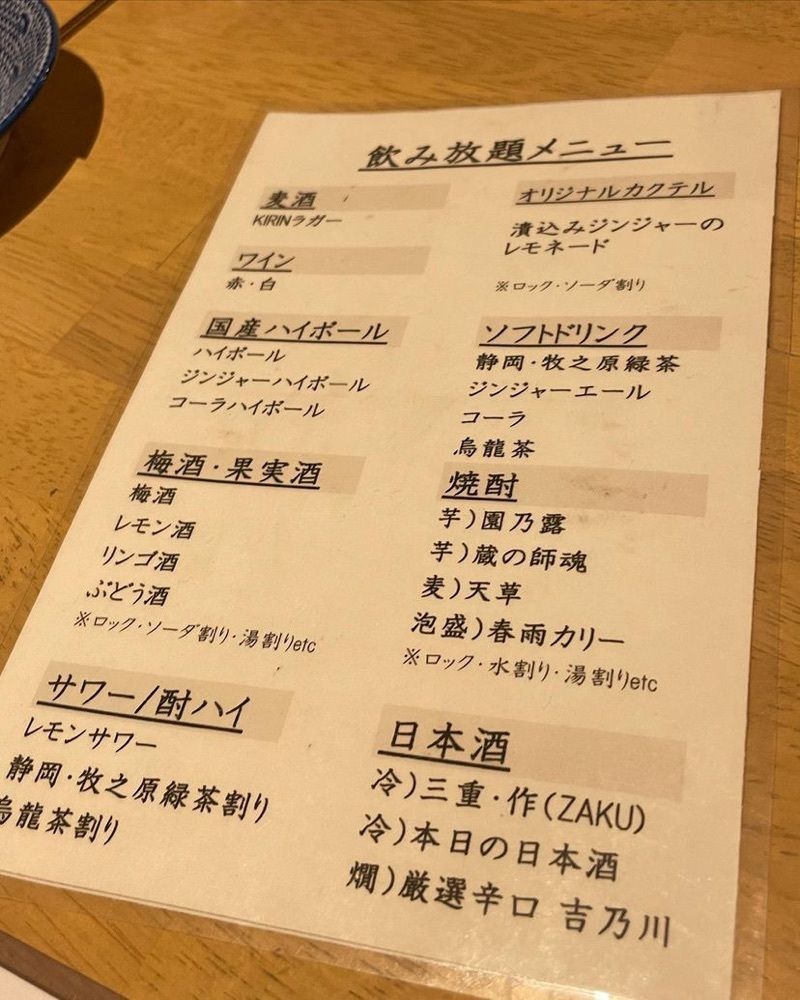 飲み放題メニュー
麦酒
KIRINラガー
ワイン
赤・白
国産ハイボール
ハイボール
ジンジャーハイボール
コーラハイボール
梅酒・果実酒
梅酒
レモン酒
リンゴ酒
ぶどう酒
※ロック・ソーダ割り・湯割りetc
サワー/酎ハイ
レモンサワー
静岡・牧之原緑茶割り
烏龍茶割り
オリジナルカクテル
漬込みジンジャーの
レモネード
※ロック・ソーダ割り
ソフトドリンク
静岡・牧之原緑茶
ジンジャーエール
コーラ
烏龍茶
焼酎
芋)園乃露
芋)蔵の師魂
麦)天草
泡盛)春雨カリー
※ロック・水割り・湯割りetc
日本酒
冷)三重・作(ZAKU)
冷)本日の日本酒
燗)厳選辛口 吉乃川